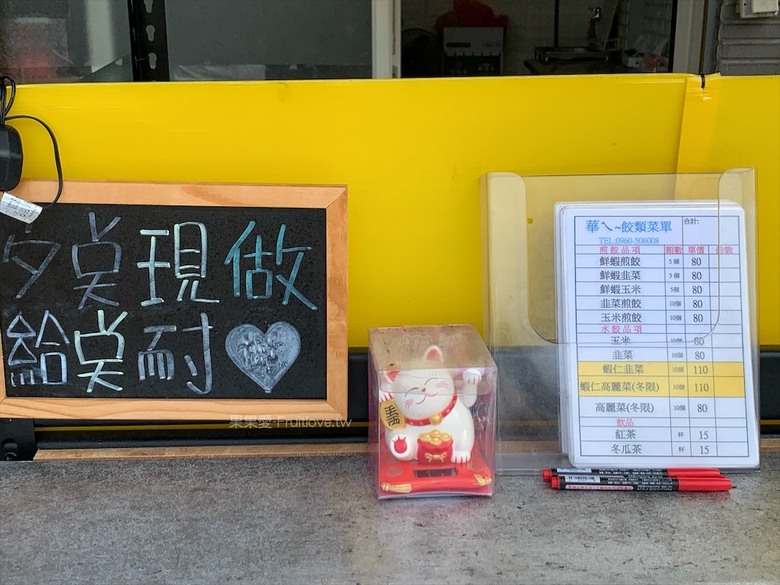 夕㒵現做
給㒵耐
果果愛 Fruitlove.tw
華ㄟ~餃類菜單 合計:
TEL:0960-506008
煎餃品項 顆數 單價 份數
鮮蝦煎餃 5個 80
鮮蝦韭菜 5個 80
鮮蝦玉米 5個 80
韭菜煎餃 10個 80
玉米煎餃 10個 80
水餃品項
玉米 10個 80
韭菜 10個 80
蝦仁韭菜 10個 110
蝦仁高麗菜(冬限) 10個 110
高麗菜(冬限) 10個 80
飲品
紅茶 杯 15
冬瓜茶 杯 15